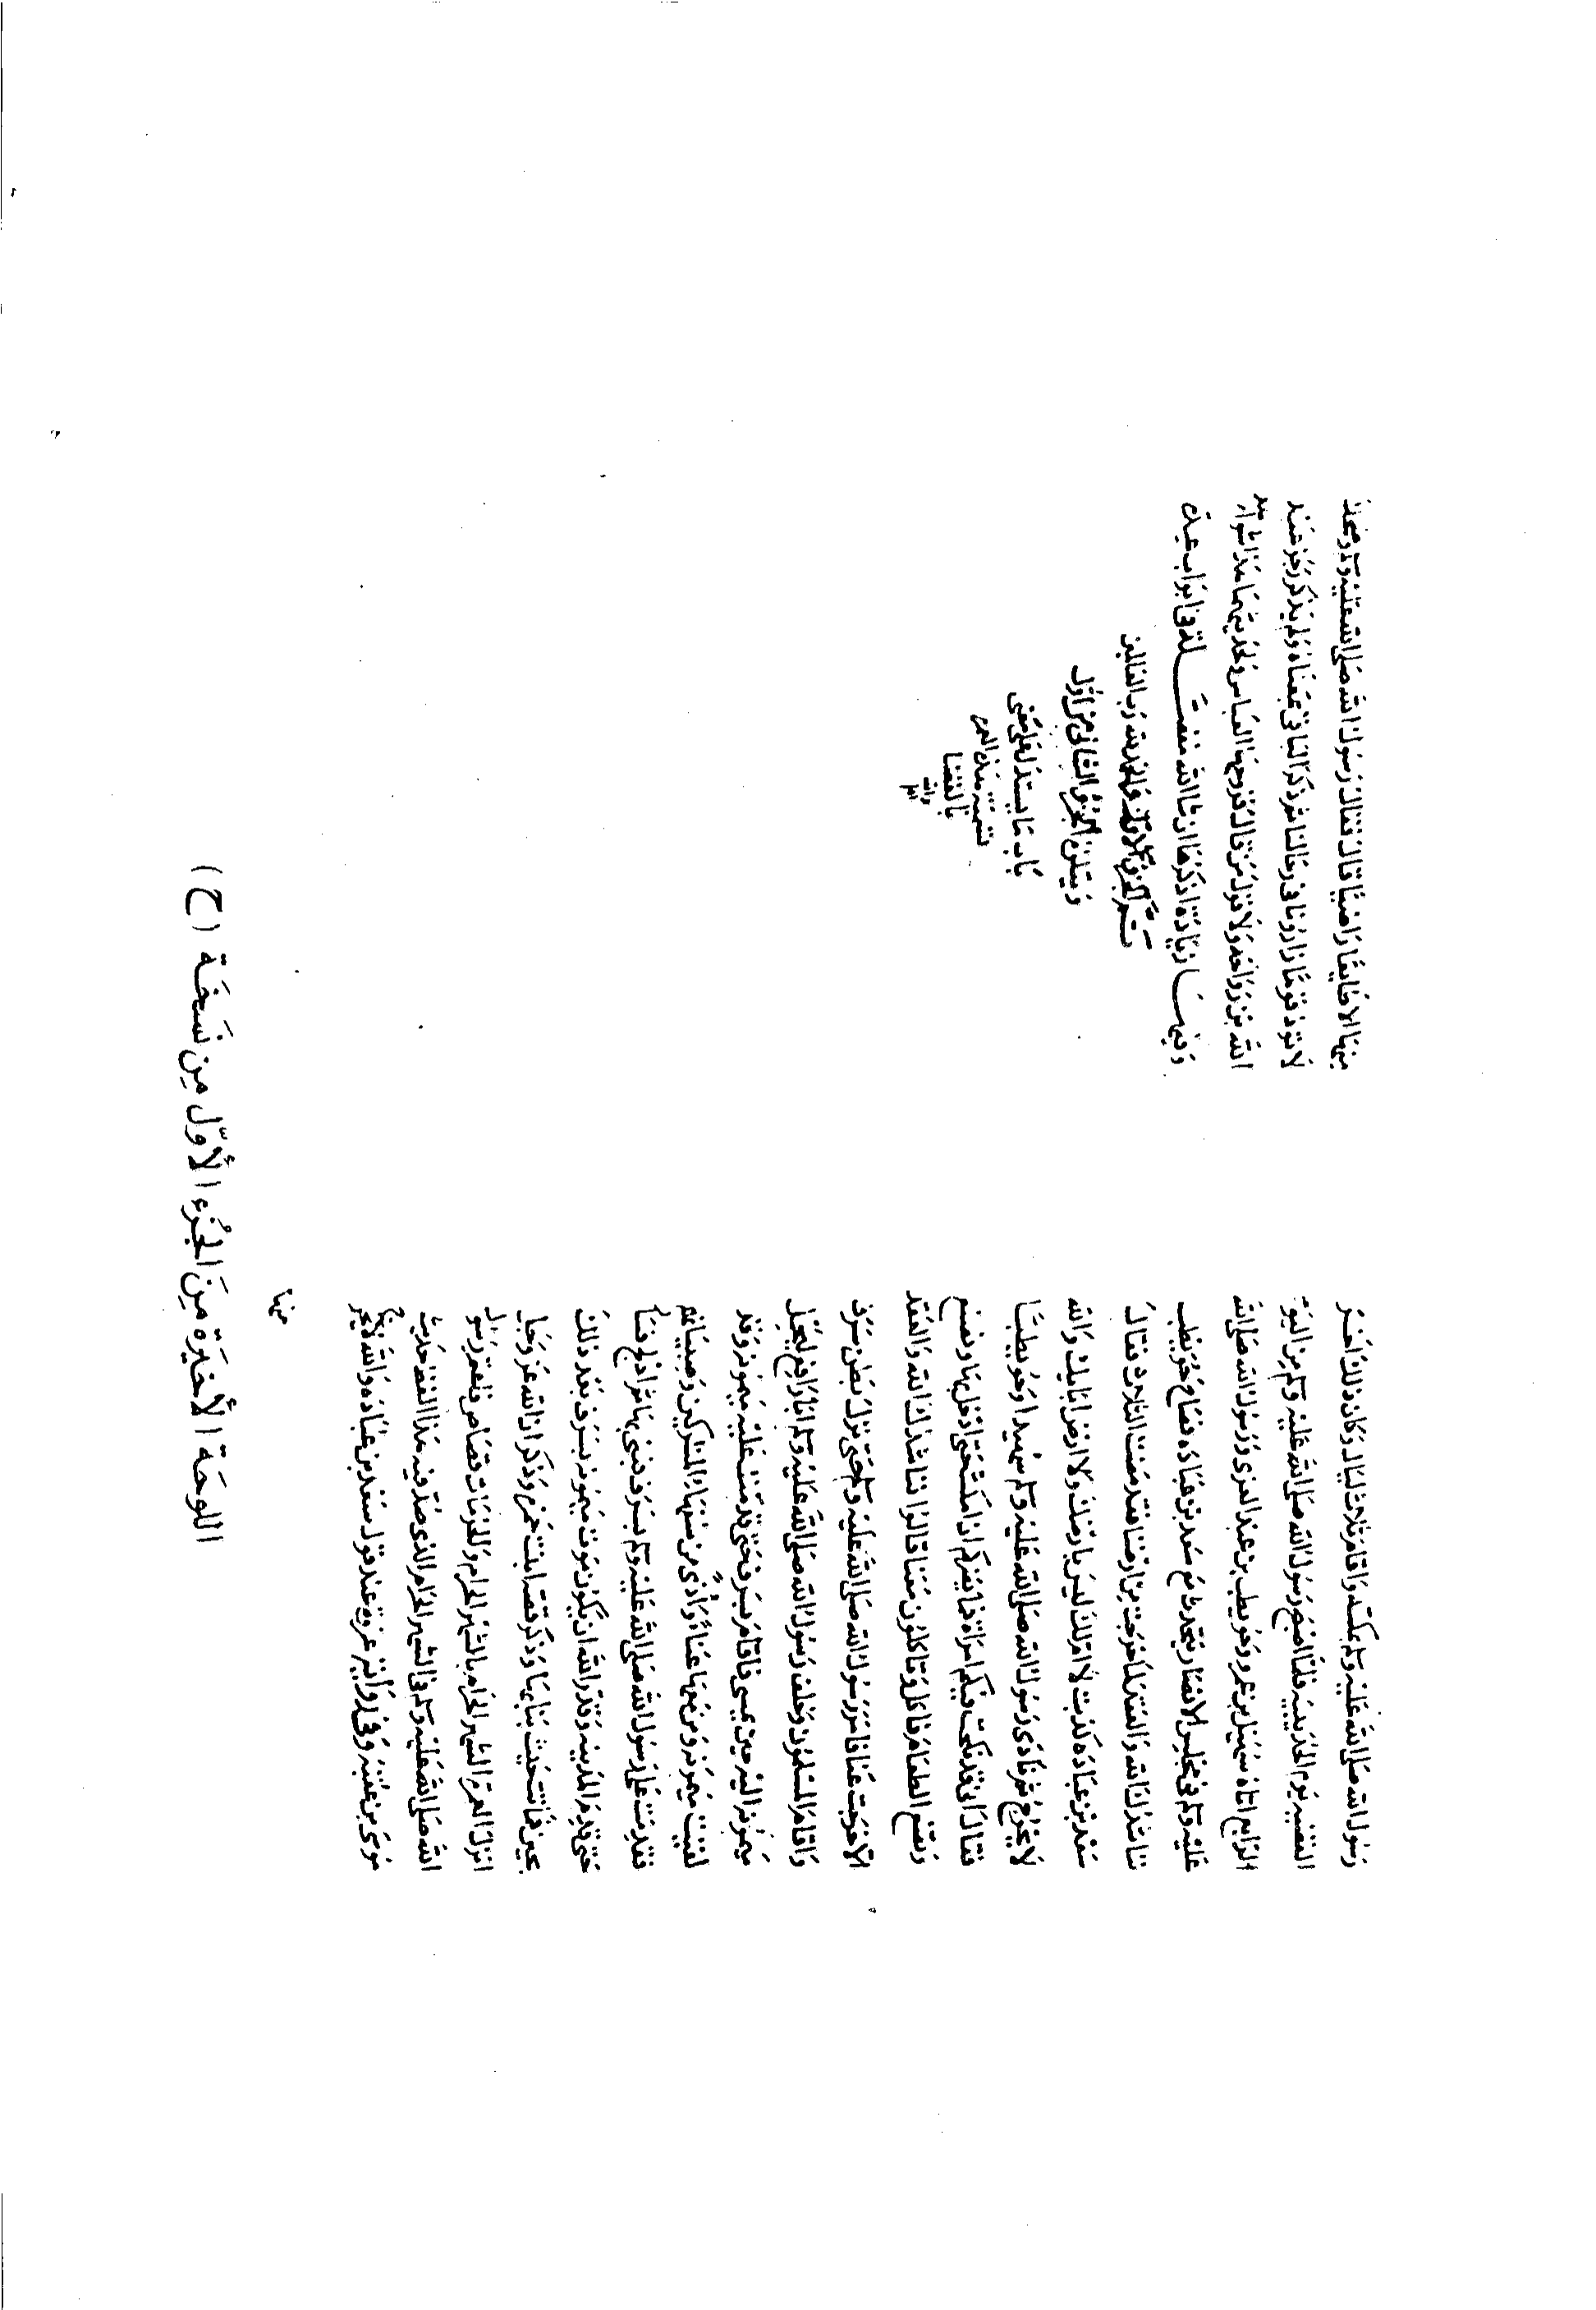 رسول الله صلى الله عليه وسلم بمكة واقام ثلاث ليال وكان ذلك اخر
القضية يوم الحديبية فلما اصبح رسول الله صلى الله عليه وسلم من اليوم
الرابع اتاه سهيل بن عمرو وحويطب بن عبد العزى ورسول الله صلى الله
عليه وسلم في مجلس الانصار يتحدث مع سعد بن عبادة فصاح حويطب
نناشدك الله والعقد لما خرجت من ارضنا فقد مضت الثلاث فقال
سعد بن عباده كذبت لا ام لك ليس بارضك ولا ارض ابايك والله
لا يخرج ثم نادى رسول الله صلى الله عليه وسلم سهيلا وحويطبا
فقال انى قد نكحت فيكم امراة فما يضركم ان امكث حتى ادخل بها ونصنع
ونضع الطعام فناكل وتاكلون معنا قالوا نناشدك الله والعقد
الا خرجت عنا فامر رسول الله صلى الله عليه وسلم حتى نزل بطن سرف
واقام المسلمون وخلف رسول الله صلى الله عليه وسلم ابا رافع ليحمل
ميمونه اليه حين يمسي فاقام بسرف حتى قدمت عليه ميمونه وقد
لقيت ميمونه ومن معها عناءً واذًى من سفهاء المشركين وصبيانهم
فقدمت على رسول الله صلى الله عليه وسلم بسرف فبنى بها ثم ادلج فسار
حتى قدم المدينه وقدر الله ان يكون موت ميمونه بسرف بعد ذلك
بحين فماتت حيث بنى بها وذكر قصه ابنت حمزه وذكر ان الله عز وجل
انزل فى العمرة الشهر الحرام بالشهر الحرام والحرمات قصاص فاعتمر رسول
الله صلى الله عليه وسلم في الشهر الحرام الذى صد فيه هذا لفظ حديث
موسى بن عقبه وفى رواية عروة عند قول سعد بن عباده والله لا يخرج
منها
منها الا طايعا راضيا فقال رسول الله صلى الله عليه وسلم وضحك
لا تؤذ قوما زارونا فى رحالنا ثم ذكر الباقى بمعناه ولم يذكر رجز عبد
الله بن رواحه ولا قول من قال تزوجها العباس ولحديثهما هذا شواهد
وفيهـا زيادة اذكرها ان شاء الله مفصـلة فى ابواب عدة
تم الجزء الاول والحمد لله رب العالمين
ويتلوه الجزء الثانى من اول
باب ما يستدل على معنى
تسميته هذه العمرة
بالقضا
والله
اعلم
اللوحَة الأخيَرَة مِنَ الجُزء الأوّل مِن نسَخَة (ح)